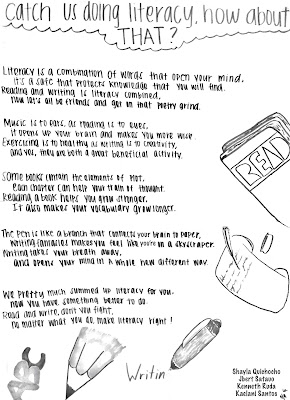 catch us doing literacy, how about
THAT?
Literacy is a combination of words that open your mind,
it's a safe that protects knowledge that you will find.
Reading and writing is literacy combined,
now let's all be friends and get on that poetry grind.
Music is to ears, as reading is to eyes,
it opens up your brain and makes you more wise.
Exercising is to healthy as writing is to creativity,
and yes, they are both a great beneficial activity.
Some books contain the elements of plot,
each chapter can help your train of thought.
Reading a book helps you grow stronger,
It also makes your vocabulary grow longer.
READ
The pen is like a branch that connects your brain to paper,
Writing fantasies makes you feel like you're in a skyscraper.
Writing takes your breath away,
and opens your mind in a whole new different way.
We pretty much summed up literacy for you,
now you have something better to do.
Read and write, don't you fight,
no matter what you do, make literacy right!
Writin
Shayla Quichocho
Jbert Sataue
Kenneth Ruda
Kaelani Santos